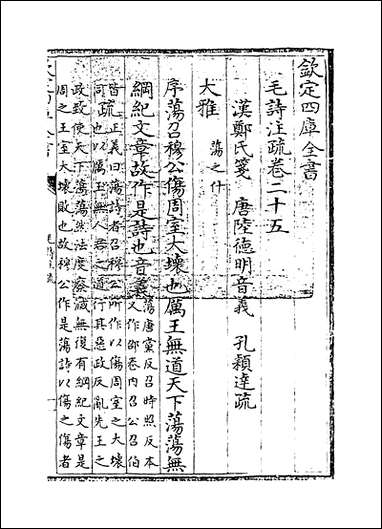 欽定四庫全書
毛詩注疏卷二十五
漢鄭氏箋 唐陸德明音義 孔穎達疏
大雅 蕩之什
序蕩召穆公傷周室大壞也厲王無道天下蕩蕩無
綱紀文章故作是詩也音義
蕩唐黨反召時照反本
又作邵卷内召公召伯
皆同
疏
正義曰蕩詩者召穆公所作以傷周室之大壞
也以厲王無人君之道行其惡政反亂先王之
政致使天下蕩蕩然法度廢滅無復有綱紀文章是
周之王室大壞敗也故穆公作是蕩詩以傷之傷者